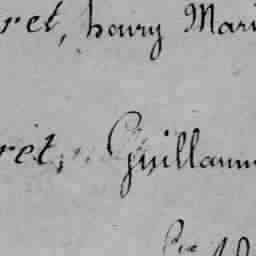 ret, henry Mari
ret, Guillaum